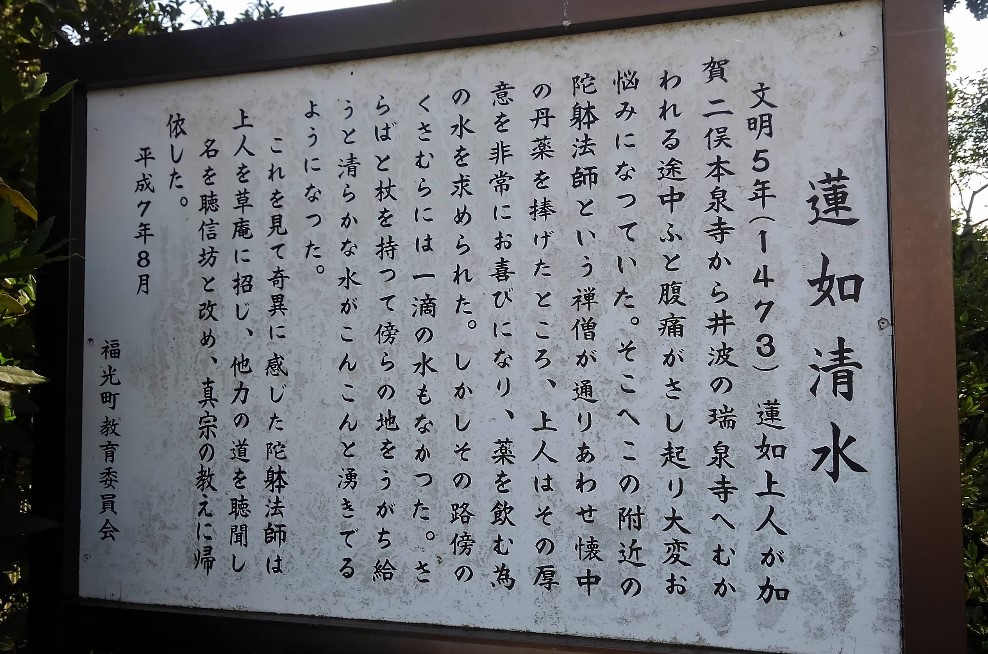 蓮如清水
文明5年(1473) 蓮如上人が加
賀 二俣本泉寺から井波の瑞泉寺へむか
われる途中ふと腹痛がさし起り大変お
悩みになつていた。そこへこの附近の
陀躰法師という禅僧が通りあわせ懐中
の丹薬を捧げたところ、上人はその厚
意を非常にお喜びになり、薬を飲む為
の水を求められた。しかしその路傍の
くさむらには一滴の水もなかつた。さ
らばと杖を持つて傍らの地をうがち給
うと清らかな水がこんこんと湧きでる
ようになつた。
これを見て奇異に感じた陀躰法師は
上人を草庵に招じ、他力の道を聴聞し
名を聴信坊と改め、真宗の教えに帰
依した。
平成7年8月
福光町教育委員会